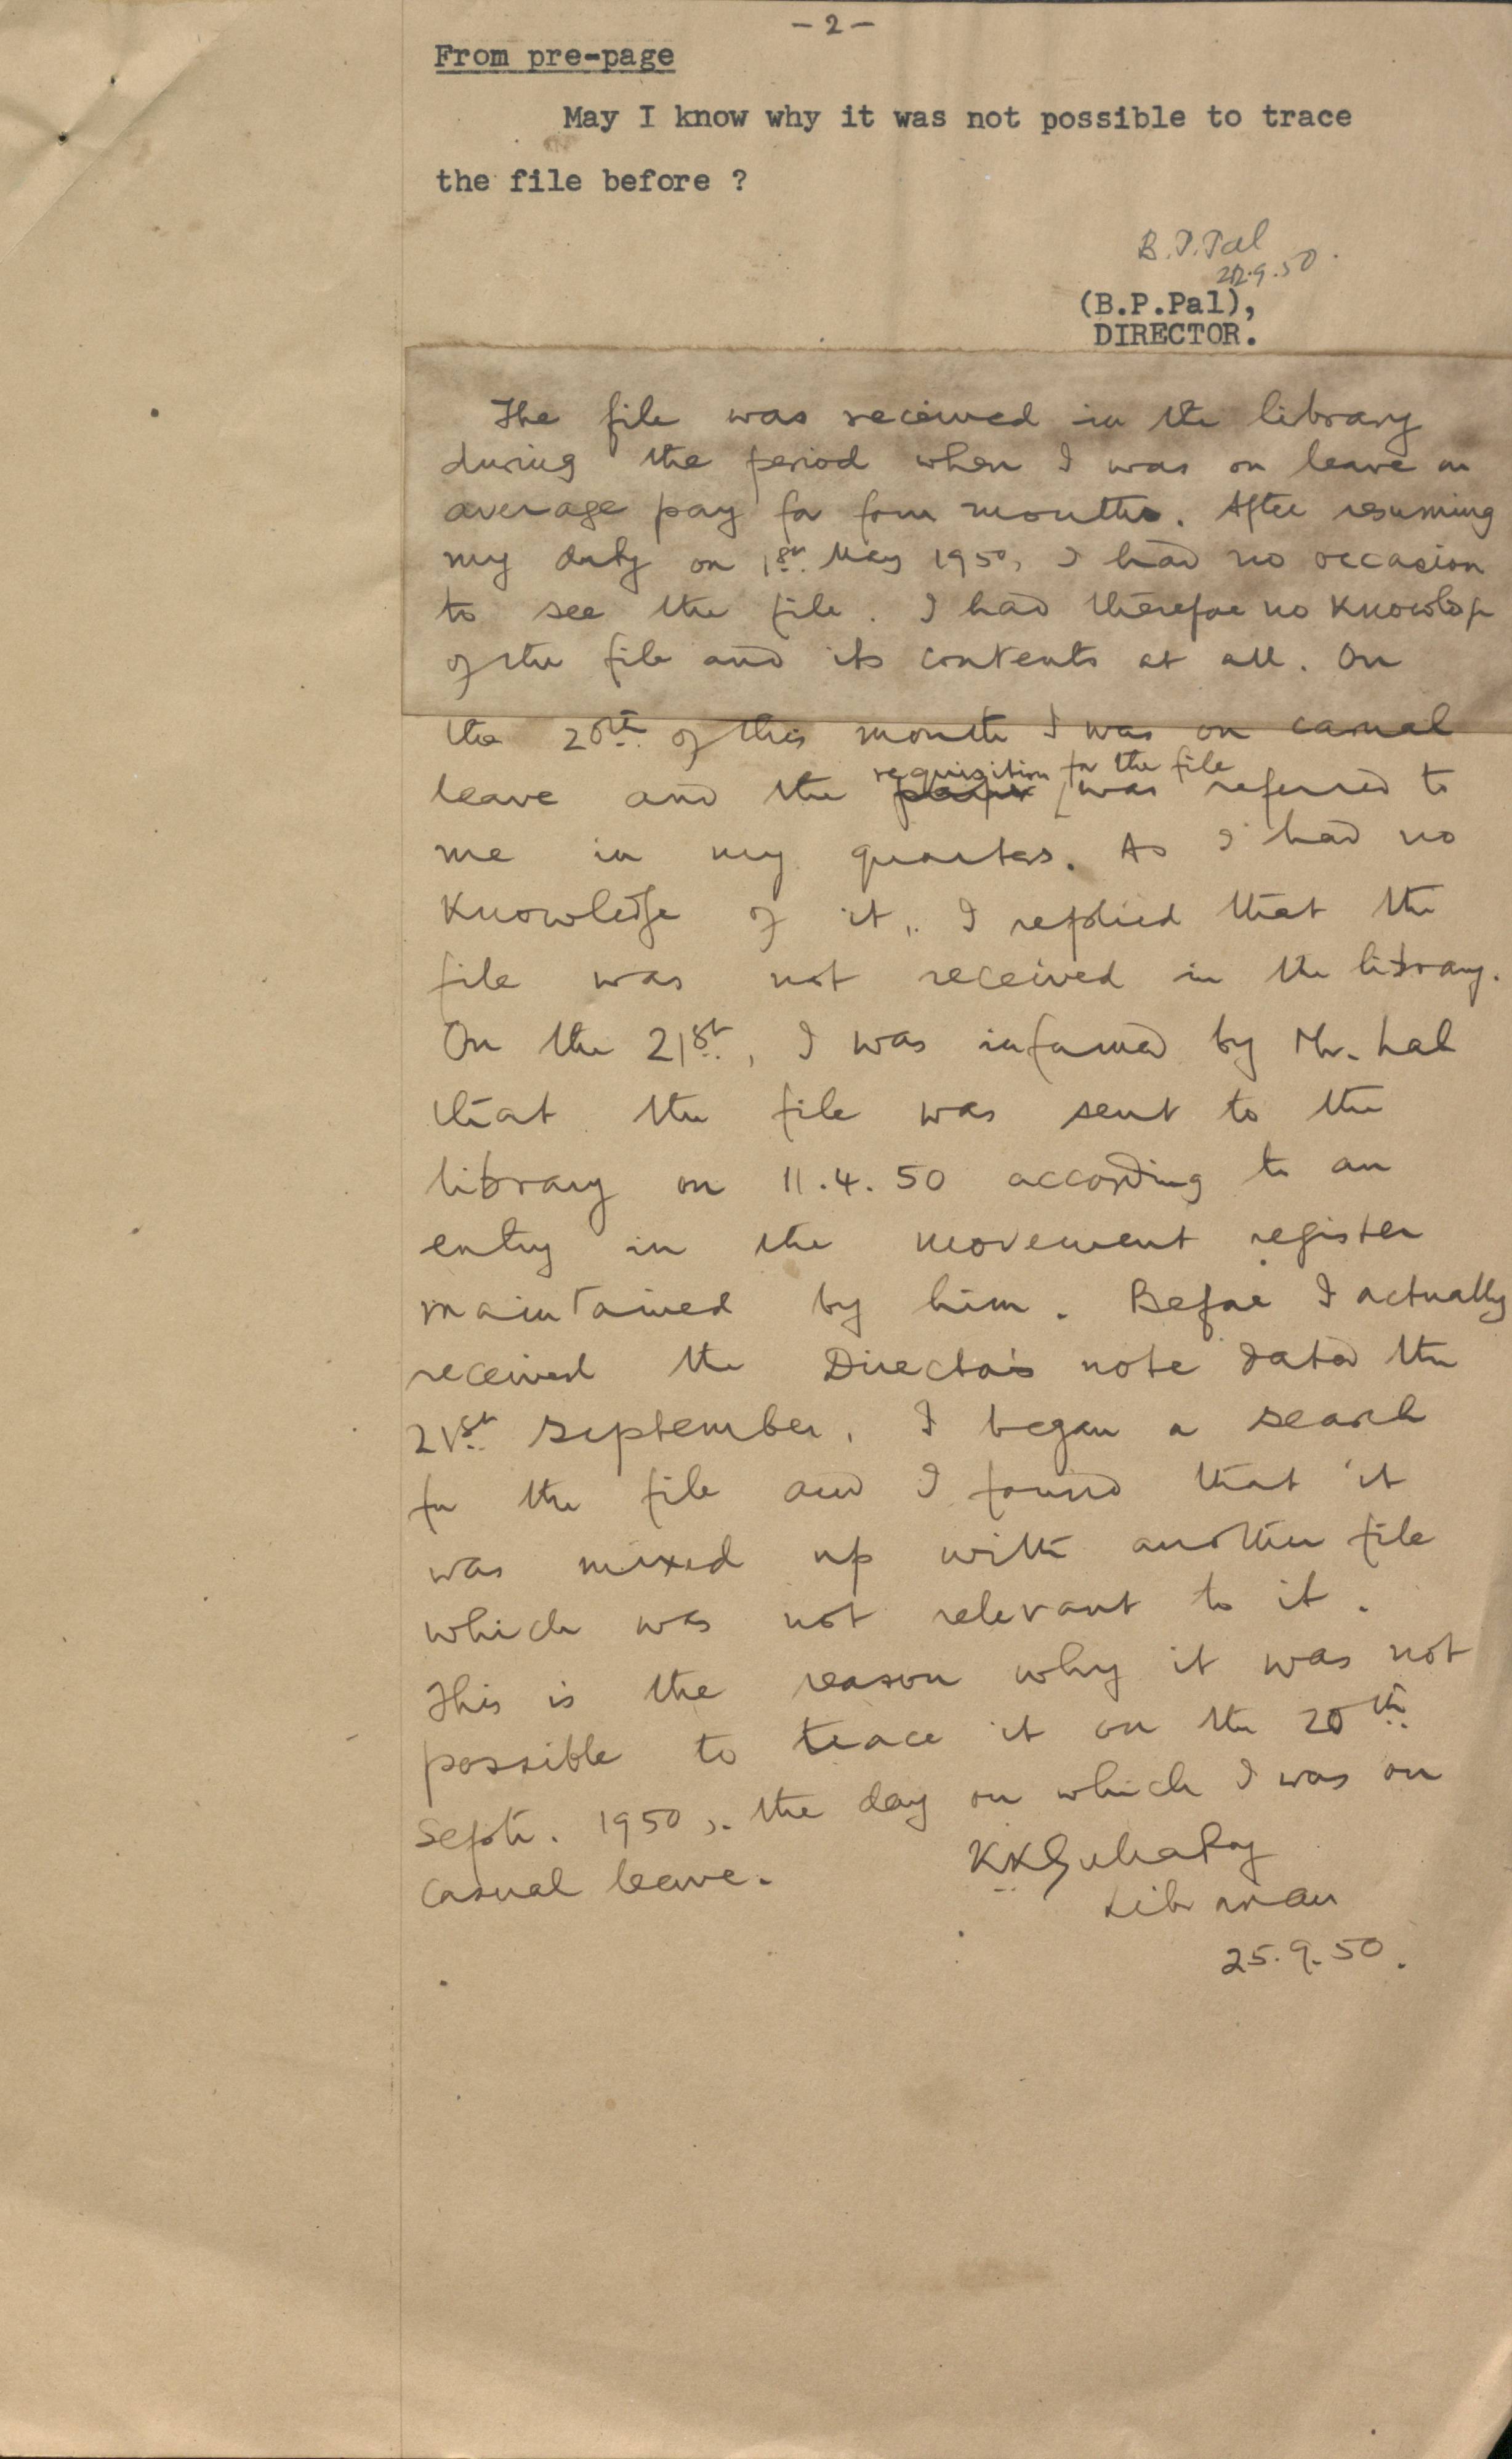 - 2 -
From pre-page
May I know why it was not possible to trace
the file before ?
B.P.Pal
22.9.50.
(B.P.Pal),
DIRECTOR.
The file was received in the library
during the period when I was on leave on
average pay for four months. After resuming
my duty on 1st. May 1950, I had no occasion
to see the file. I had therefore no knowledge
of the file and its contents at all. On
the 20th. of this month I was on casual
leave and the requisition for the file was referred to
me in my quarters. As I had no
knowledge of it, I replied that the
file was not received in the library.
On the 21st., I was informed by Mr. Lal
that the file was sent to the
library on 11.4.50 according to an
entry in the movement register
maintained by him. Before I actually
received the Director's note dated the
21st. September, I began a search
for the file and I found that it
was mixed up with another file
which was not relevant to it.
This is the reason why it was not
possible to trace it on the 20th.
Sept. 1950, the day on which I was on
casual leave.
KKGuhaRoy
Librarian
25.9.50.